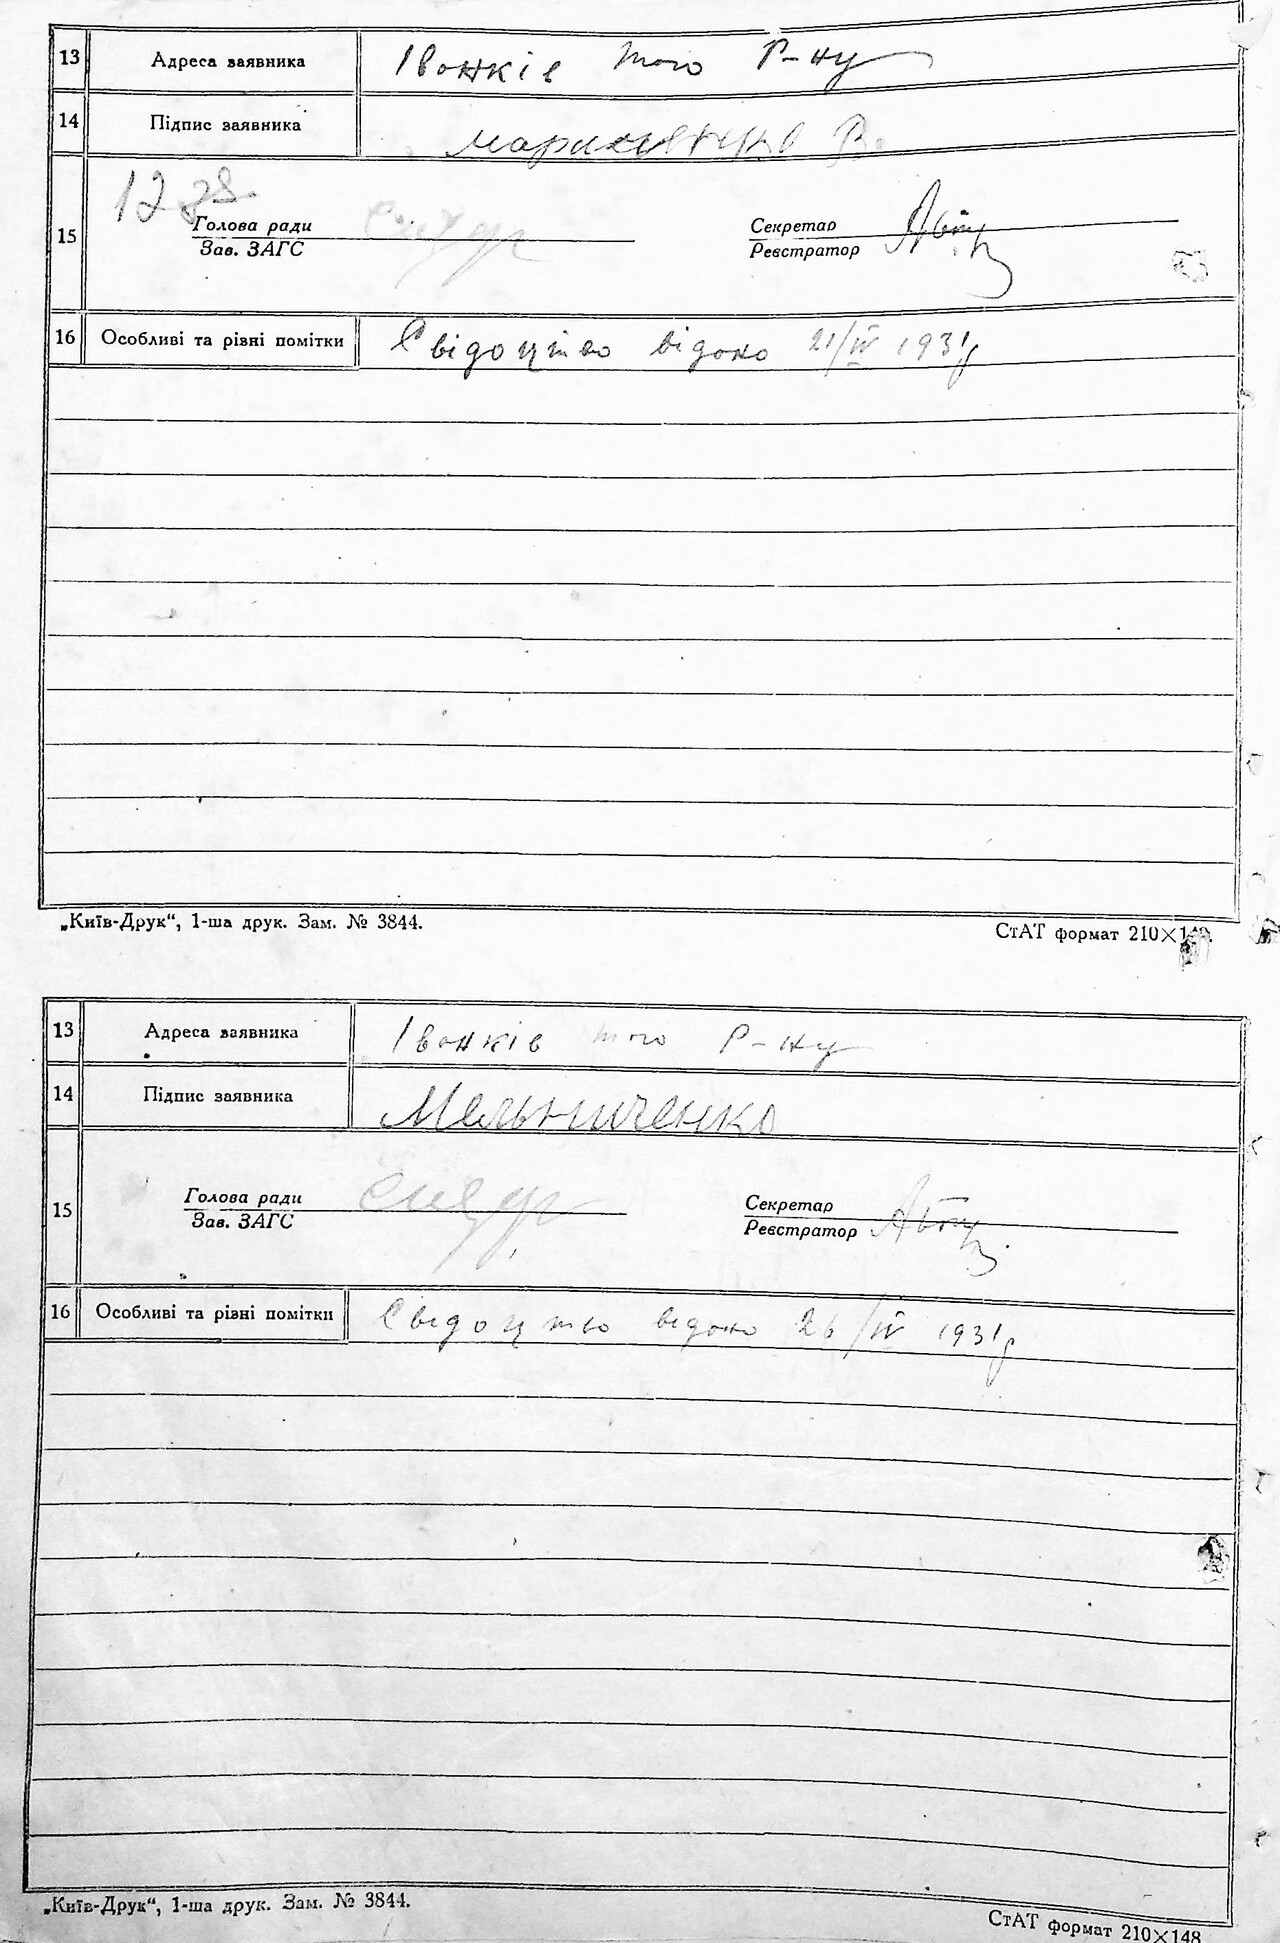 13 Адреса заявника Іванків того Р-ну
14 Підпис заявника
15 Голова ради Секретар
Зав. ЗАГС Реєстратор
16 Особливі та різні помітки Свідоцтво відано 21/IV 1931р
„Київ-Друк“, 1-ша друк. Зам. № 3844.
СтАТ формат 210×148.
13 Адреса заявника Іванків того Р-ну
14 Підпис заявника Мельниченко
15 Голова ради Секретар
Зав. ЗАГС Реєстратор
16 Особливі та різні помітки Свідоцтво відано 26/IV 1931р
„Київ-Друк“, 1-ша друк. Зам. № 3844.
СтАТ формат 210×148